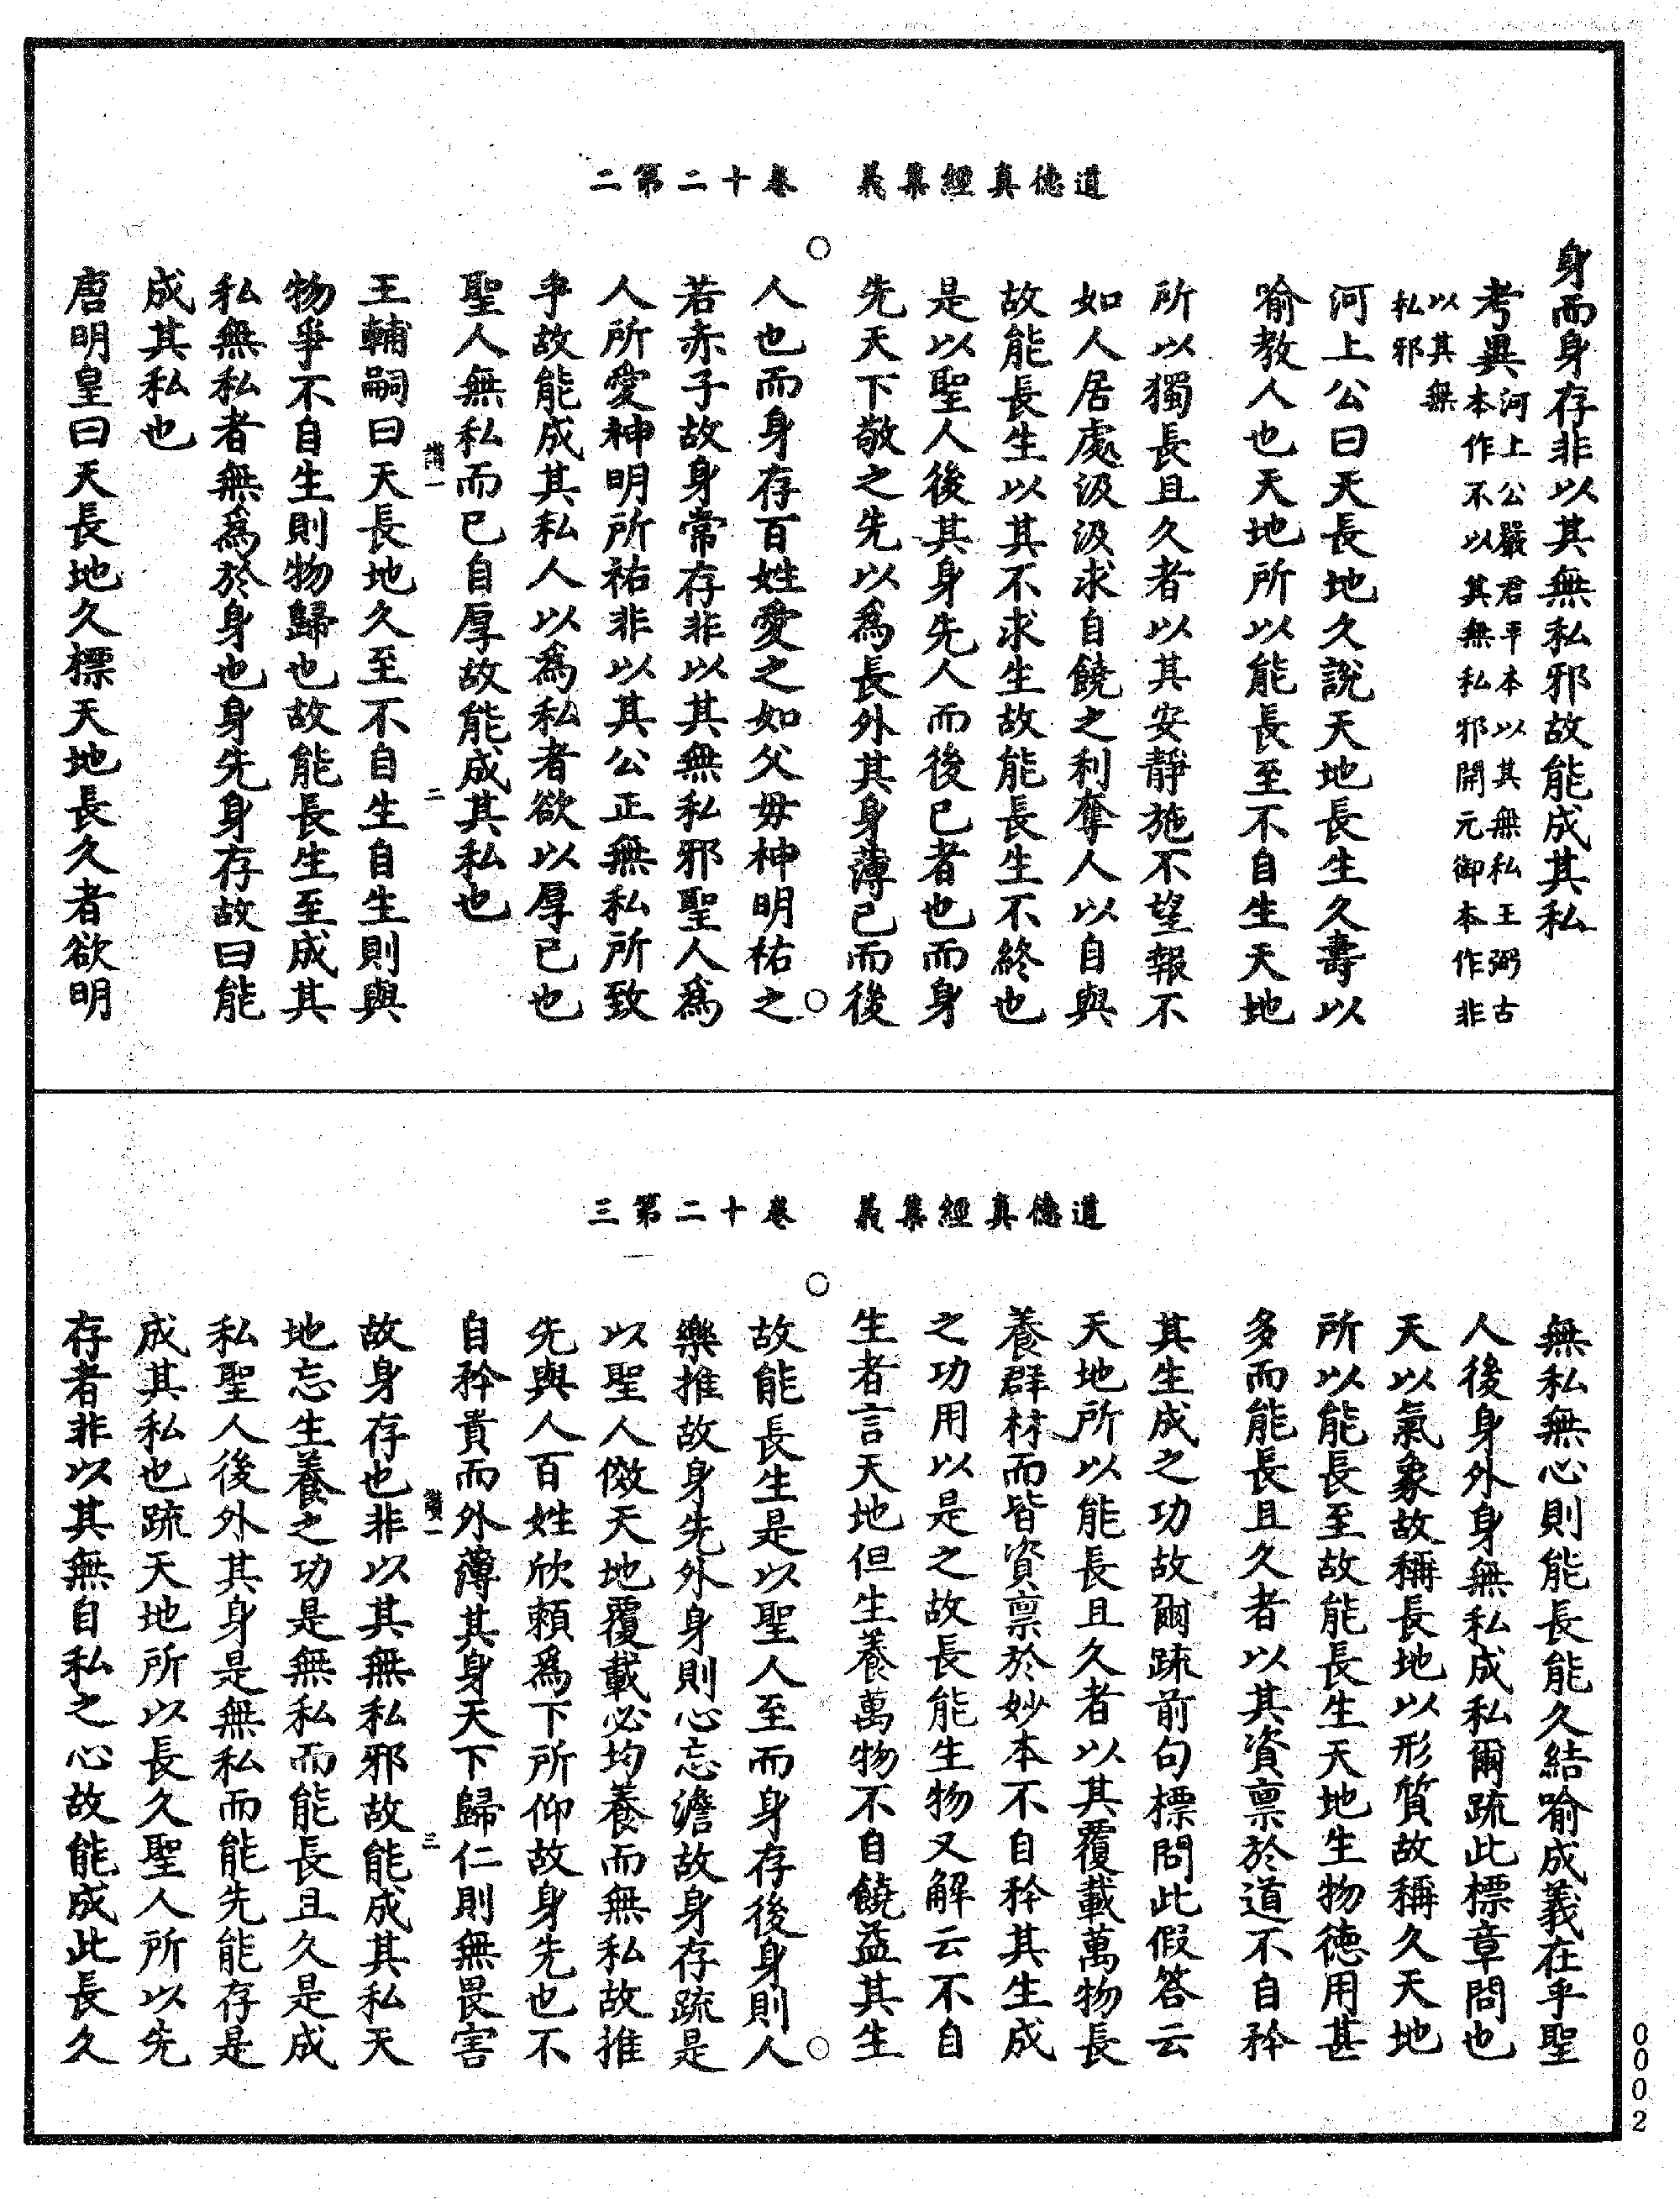 道德真經集義　卷十二第二
身而身存非以其無私邪故能成其私
考異河上公嚴君平本以其無私王弼古
本作不以其無私邪開元御本作非
以其無
私邪
河上公曰天長地久說天地長生久壽以
喻教人也天地所以能長至不自生天地
所以獨長且久者以其安靜施不望報不
如人居處汲汲求自饒之利奪人以自與
故能長生以其不求生故能長生不終也
是以聖人後其身先人而後已者也而身
先天下敬之先以為長外其身薄已而後
人也而身存百姓愛之如父毋神明祐之
若赤子故身常存非以其無私邪聖人為
人所愛神明所祐非以其公正無私所致
乎故能成其私人以為私者欲以厚已也
聖人無私而已自厚故能成其私也
讃一　二
王輔嗣曰天長地久至不自生自生則與
物爭不自生則物歸也故能長生至成其
私無私者無為於身也身先身存故曰能
成其私也
唐明皇曰天長地久標天地長久者欲明
道德真經集義　卷十二第三
無私無心則能長能久結喻成義在乎聖
人後身外身無私成私爾疏此標章問也
天以氣象故稱長地以形質故稱久天地
所以能長至故能長生天地生物德用甚
多而能長且久者以其資禀於道不自矜
其生成之功故爾疏前句標問此假答云
天地所以能長且久者以其覆載萬物長
養群材而皆資禀於妙本不自矜其生成
之功用以是之故長能生物又解云不自
生者言天地但生養萬物不自饒益其生
故能長生是以聖人至而身存後身則人
樂推故身先外身則心忘澹故身存疏是
以聖人倣天地覆載必均養而無私故推
先與人百姓欣賴為下所仰故身先也不
自矜貴而外薄其身天下歸仁則無畏害
讃一　三
故身存也非以其無私邪故能成其私天
地忘生養之功是無私而能長且久是成
私聖人後外其身是無私而能先能存是
成其私也疏天地所以長久聖人所以先
存者非以其無自私之心故能成此長久
0002